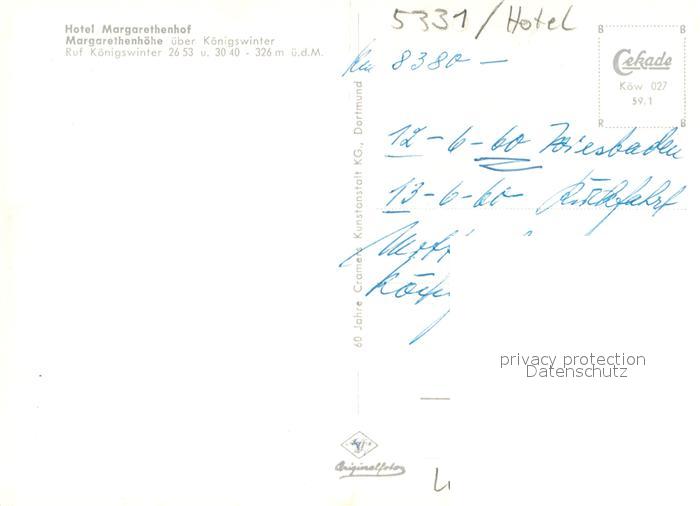 Hotel Margarethenhof
Margarethenhöhe über Königswinter
Ruf Königswinter 26 53 u. 30 40 - 326 m ü.d.M.
5331/Hotel
Cekade
Köw 027
59.1
B B
R B
km 8380 —
12-6-60 Wiesbaden
13-6-60 Rückfahrt
60 Jahre Cramers Kunstanstalt KG., Dortmund
privacy protection
Datenschutz
Originalfoto